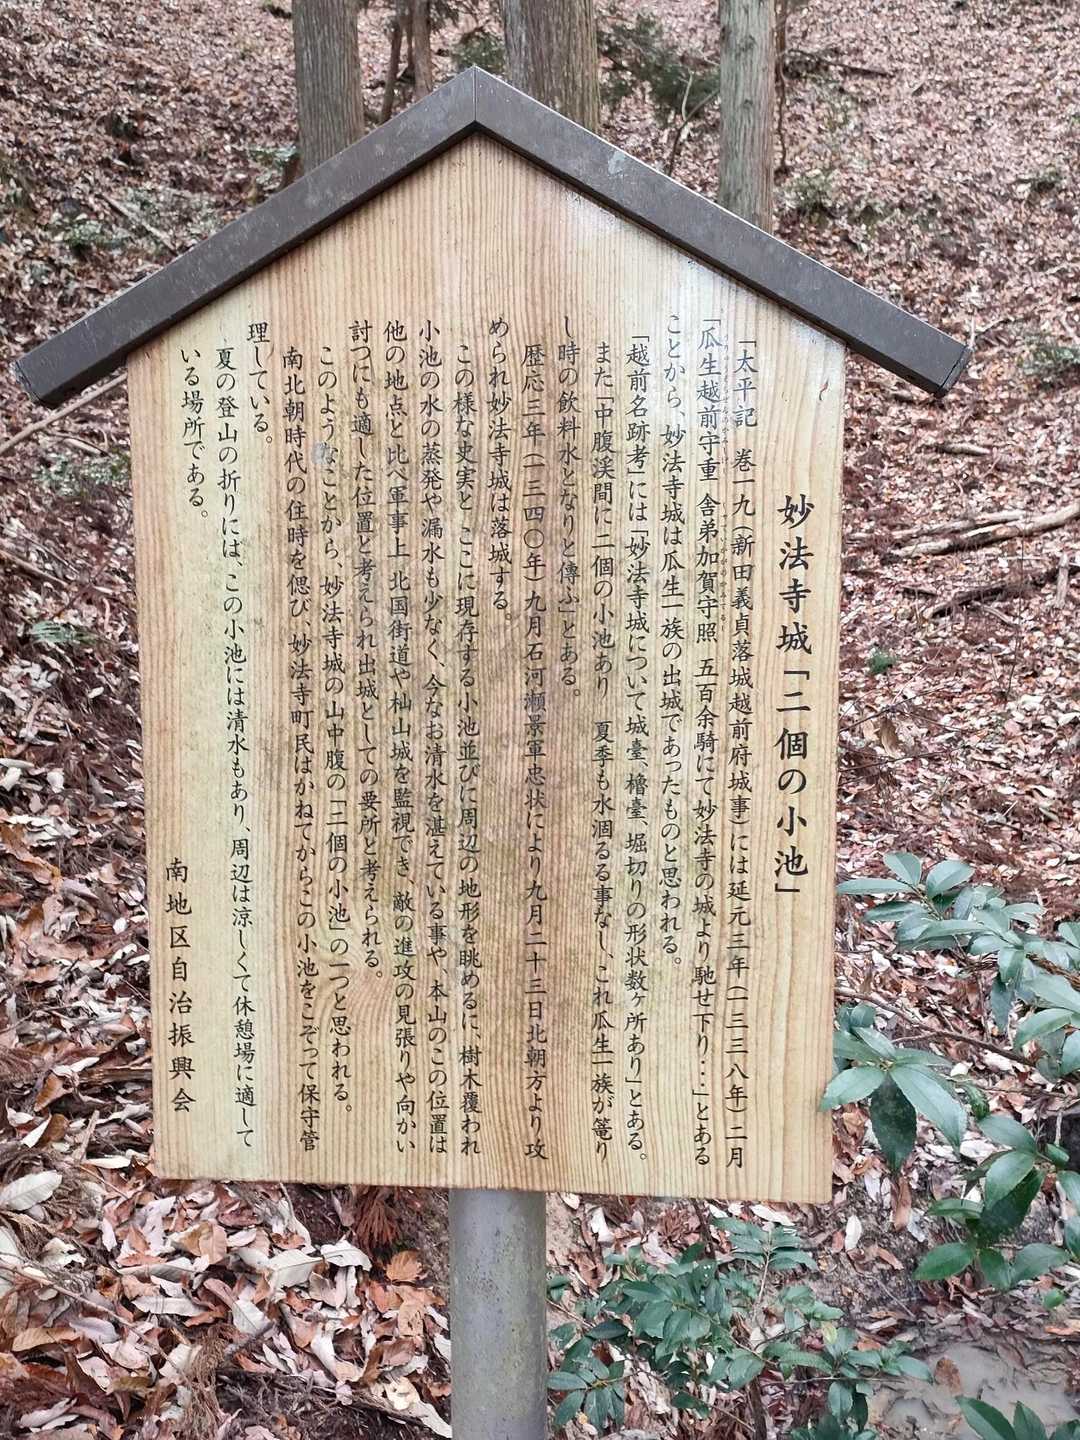 妙法寺城「二個の小池」
「太平記　巻一九（新田義貞落城越前府城事）には延元三年（一三三八年）二月
「瓜生越前守重　舎弟加賀守照　五百余騎にて妙法寺の城より馳せ下り・・・」とある
ことから、妙法寺城は瓜生一族の出城であったものと思われる。
「越前名跡考」には「妙法寺城について城臺、櫓臺、堀切りの形状数ヶ所あり」とある。
また「中腹渓間に二個の小池あり　夏季も水涸るる事なし、これ瓜生一族が篭り
し時の飲料水となりと傳ふ」とある。
歴応三年（一三四〇年）九月石河瀬景軍忠状により九月二十三日北朝方より攻
められ妙法寺城は落城する。
この様な史実と ここに現存する小池並びに周辺の地形を眺めるに、樹木覆われ
小池の水の蒸発や漏水も少なく、今なお清水を湛えている事や、本山のこの位置は
他の地点と比べ軍事上 北国街道や杣山城を監視でき、敵の進攻の見張りや向かい
討つにも適した位置と考えられ出城としての要所と考えられる。
このようなことから、妙法寺城の山中腹の「二個の小池」の一つと思われる。
南北朝時代の住時を偲び、妙法寺町民はかねてからこの小池をこぞって保守管
理している。
夏の登山の折りには、この小池には清水もあり、周辺は涼しくて休憩場に適して
いる場所である。
南地区自治振興会